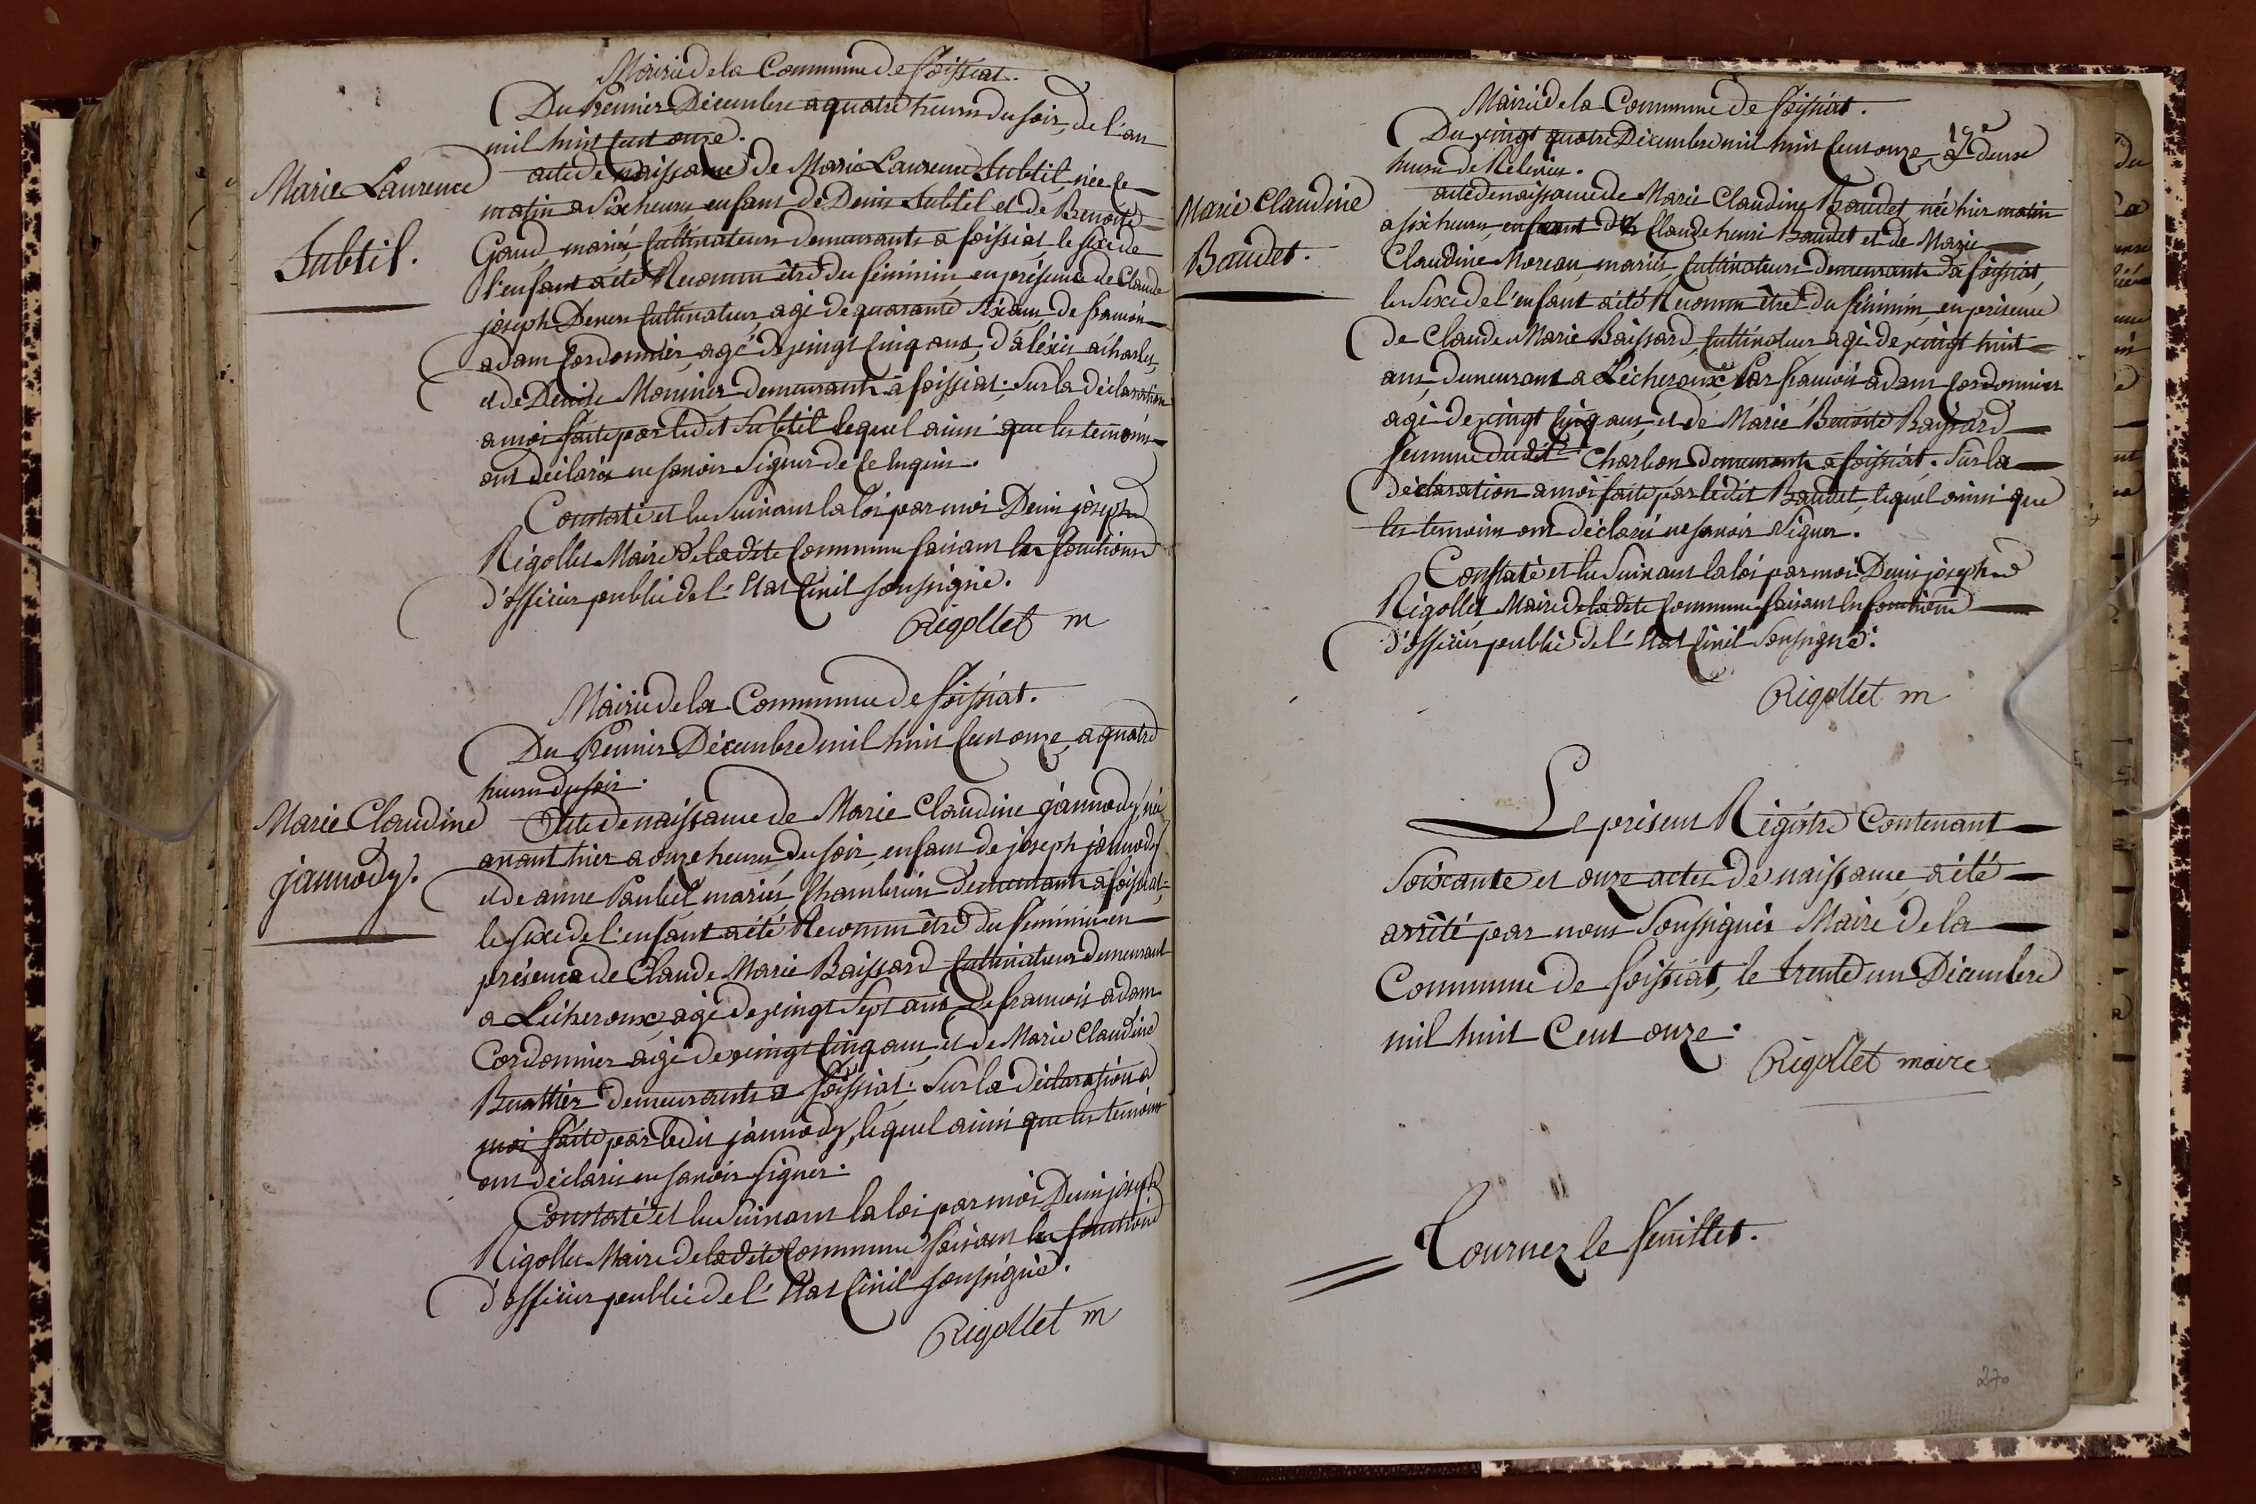 Mairie de la Commune de foissiat.
Du Premier Décembre a quatre heures du soir, de l'an
mil huit cent onze.
Marie Laurence
Subtil.
acte de naissance de Marie Laurence Subtil, née ce
matin a Six heures, enfant de Denis Subtil et de Benoite
Gaud, mariés, Cultivateurs demeurants a foissiat, le sexe de
l'enfant a été Reconnu être du féminin, en présence de Claude
joseph Cultivateur agé de quarante Six ans, de francois
adam Cordonnier, agé de vingt Cinq ans, d'aléxis
et de Denise Monnier demeurants a foissiat; Sur la déclaration
a moi faite par ledit Subtil lequel ainsi que les temoins
ont déclarés ne savoir Signer de ce Enquis.
Constaté et lu Suivant la loi par moi Denis joseph
Rigollet Maire de la dite Commune faisant les fonctions
d'officier public de l'Etat Civil soussigné.
Rigollet m
Mairie de la Commune de foissiat.
Du Premier Décembre mil huit Cent onze, a quatre
heures du soir.
Marie Claudine
jannody.
Acte de naissance de Marie Claudine jannody, née
avant hier a onze heures du soir, enfant de joseph jannody
et de anne mariés, demeurants a foissiat,
le Sexe de l'enfant a été Reconnu être du féminin en
présence de Claude Marie Baissard Cultivateur demeurant
a Lécheroux, agé de vingt Sept ans, de francois adam
Cordonnier agé de vingt Cinq ans, et de Marie Claudine
Buathier demeurants a foissiat; Sur la déclaration a
moi faite par ledit jannody, lequel ainsi que les temoins
ont déclarés ne savoir signer.
Constaté et lu Suivant la loi par moi Denis joseph
Rigollet Maire de la dite Commune faisant les fonctions
d'officier public de l'Etat Civil soussigné.
Rigollet m
Mairie de la Commune de foissiat.
Du vingt quatre Décembre mil huit Cent onze, a deux
heures de Relevée.
Marie Claudine
Baudet.
acte de naissance de Marie Claudine Baudet, née hier matin
a six heures, enfant de Claude henri Baudet et de Marie
Claudine Moreau, mariés, Cultivateurs demeurants a foissiat,
le Sexe de l'enfant a été Reconnu être du féminin, en présence
de Claude Marie Baissard, Cultivateur agé de vingt huit
ans, demeurant a Lécheroux, Par francois adam Cordonnier
agé de vingt Cinq ans, et de Marie Benoite Baissard
femme dudit Charbon demeurants a foissiat. Sur la
déclaration a moi faite par ledit Baudet, lequel ainsi que
les temoins ont déclarés ne savoir Signer.
Constaté et lu Suivant la loi par moi Denis joseph
Rigollet Maire de la dite Commune faisant les fonctions
d'officier public de l'Etat Civil soussigné.
Rigollet m
Le présent Régistre Contenant
Soixante et onze actes de naissance, a été
arrêté par nous Soussignés Maire de la
Commune de foissiat, le trente un Décembre
mil huit Cent onze.
Rigollet maire
Tournez le feuillet.
270